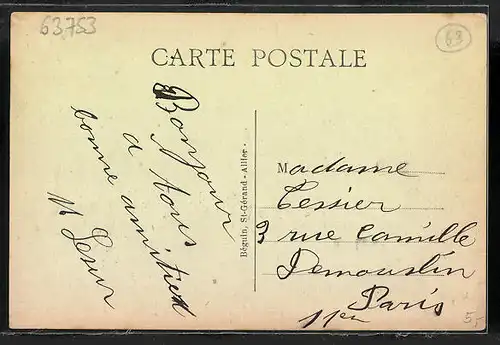 63753
63
CARTE POSTALE
Bonjour
a tous
bonne amitiée
Béguin, St-Gérand - Allier -
Madame
Tessier
3 rue Camille
Demoustin
Paris
11en
5,-